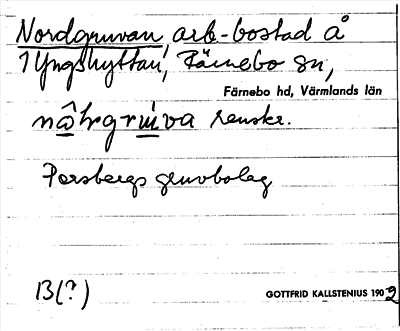 Nordgruvan arb-bostad å
1 Yngshyttan, Färnebo sn,
Färnebo hd, Värmlands län
nôl̄rgrɯ́va senske.
Persbergs gruvbolag
B(?)
GOTTFRID KALLSTENIUS 1902